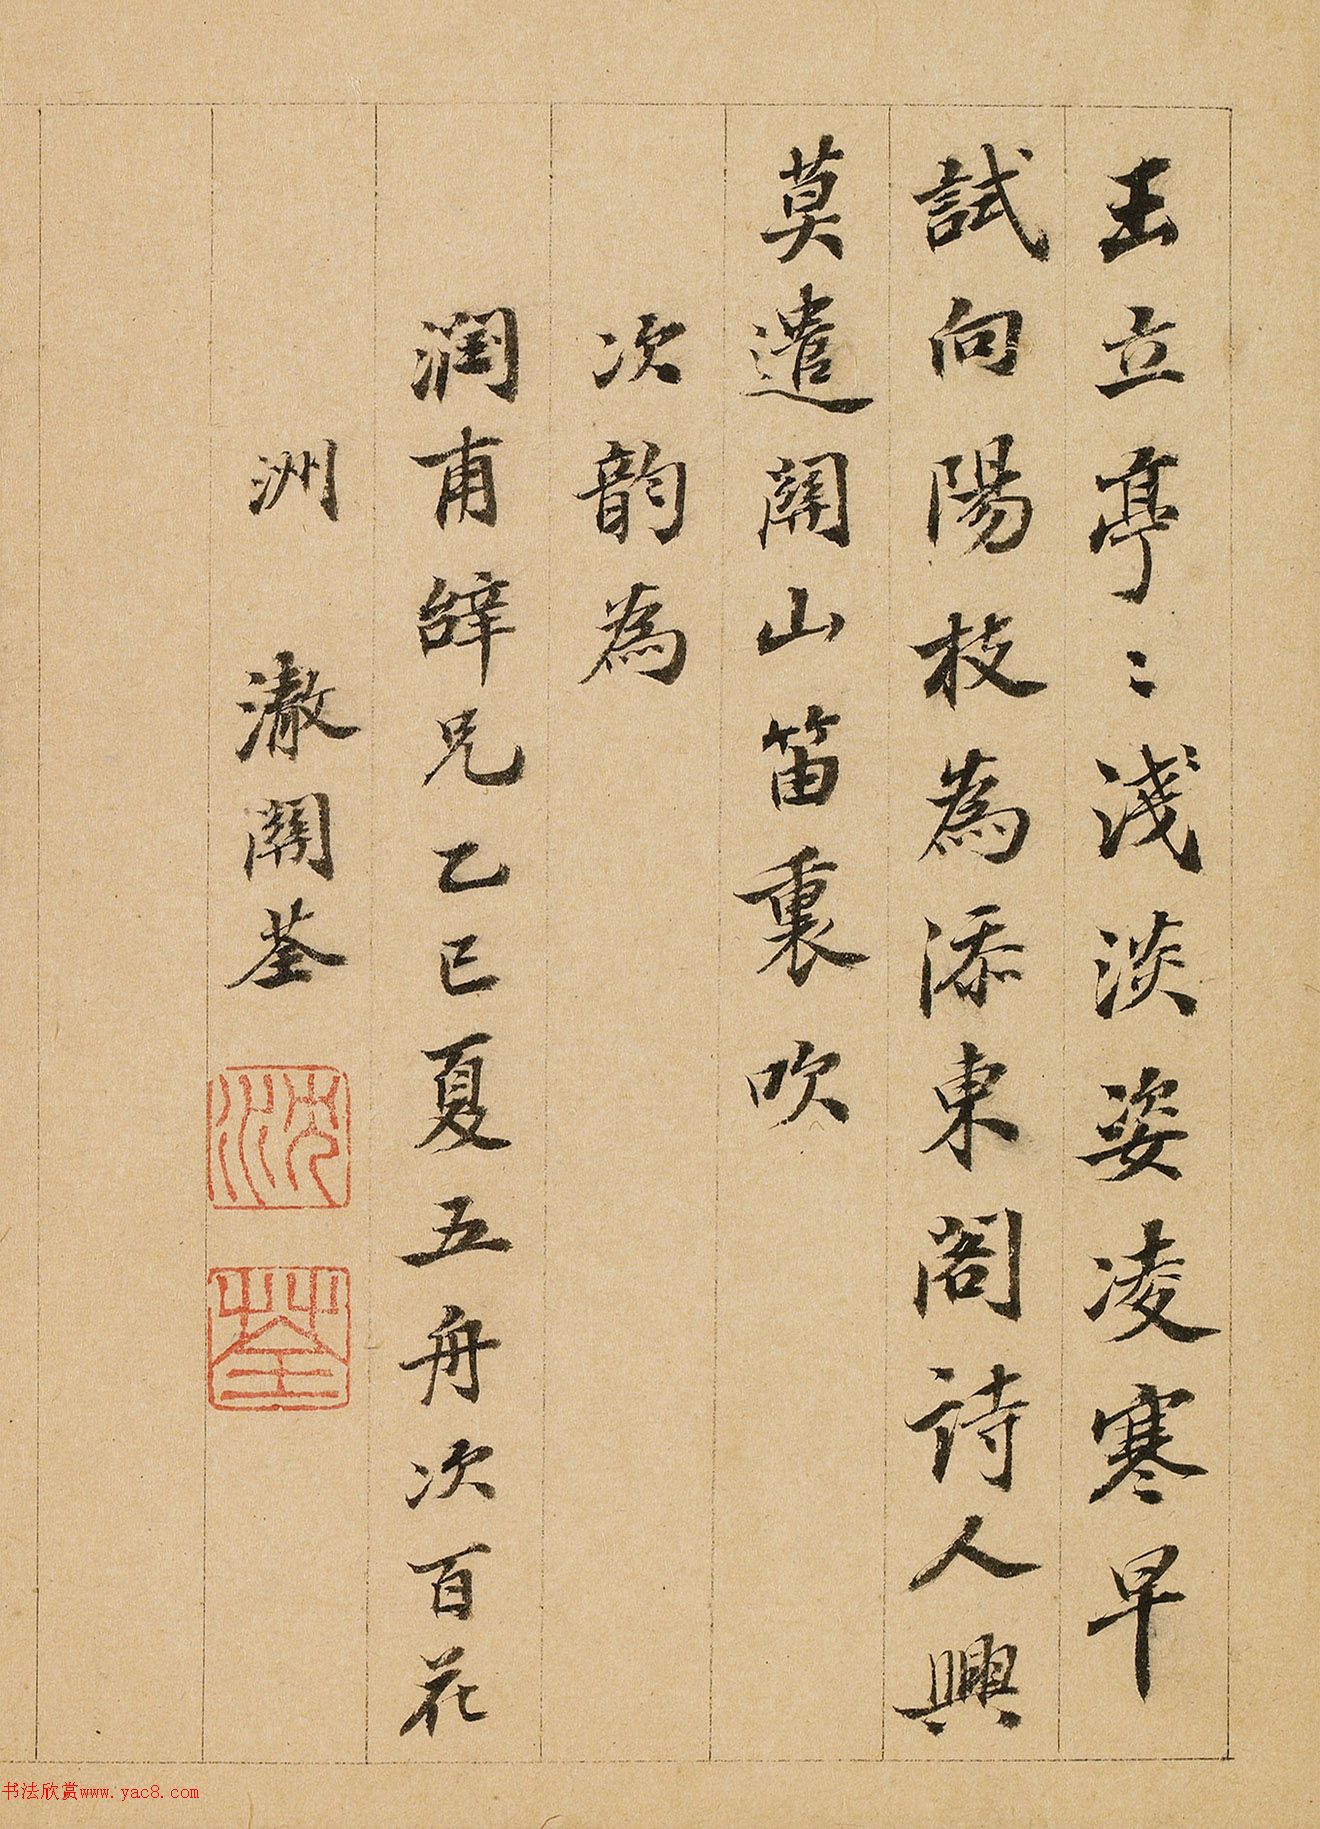 玉立亭〻淺淡姿凌寒早
試向陽枝為添東閣詩人興
莫遣關山笛裏吹
次韵為
潤甫辥兄乙巳夏五舟次百花
洲 澂關荃
沈
荃
书法欣赏www.yac8.com